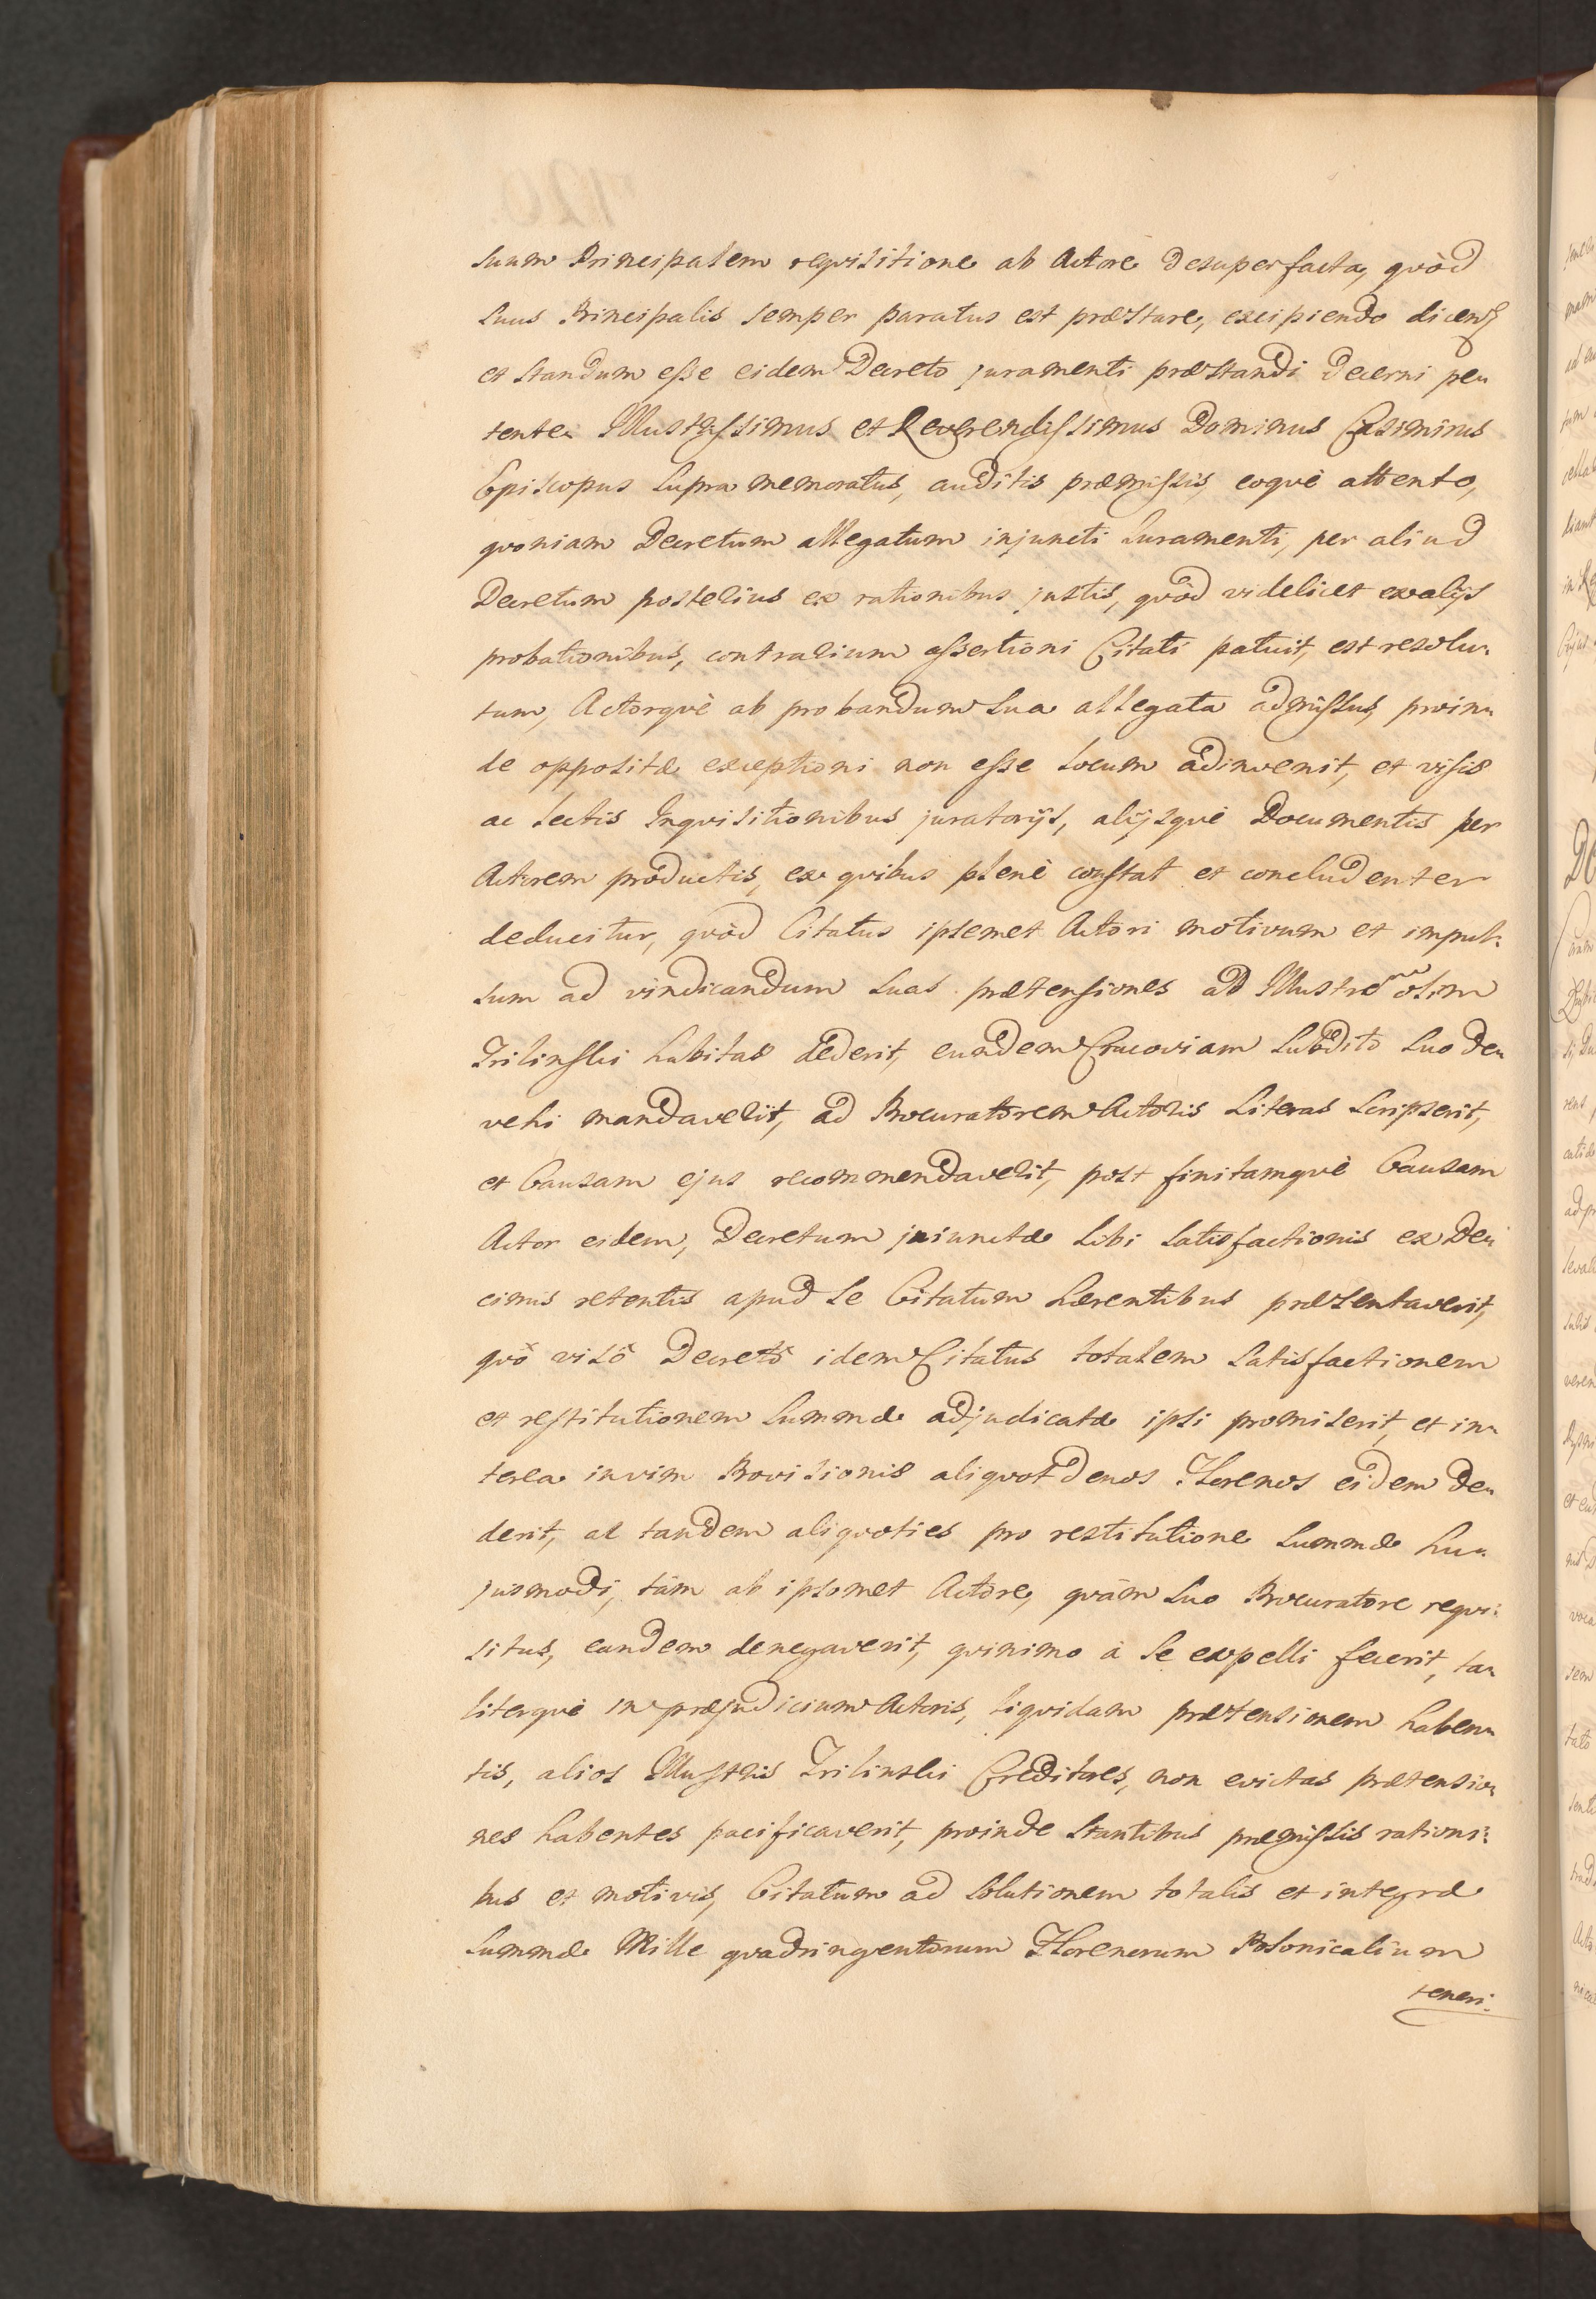 suum Principalem reqvisitione ab Actore desuper facta, qvòd
suus Principalis semper paratus est præstare, excipiendo dicen
et standum esse eidem Decreto juramenti præstandi decerni pe-
tente. Illustrissimus et Reverendissimus Dominus Casimirus
Episcopus supra memoratus, auditis præmissis, eoqvè attento,
qvoniam Decretum allegatum injuncti Juramenti, per aliud
Decretum posterius ex rationibus justis, qvòd videlicet ex alijs
probationibus, contrarium assertioni Citati patuit, est resolu-
tum, Actorqvè ab probandum sua allegata admissus, proin-
de oppositæ exceptioni non esse locum adinvenit, et visis
ac lectis Inqvisitionibus juratorijs, alijsqvè Documentis per
Actorem productis, ex qvibus plenè constat et concludenter
deducitur, qvòd Citatus ipsemet Actori motivum et impul-
sum ad vindicandum suas prætensiones ad Illustrem olim
Trilinski habitas dederit, eundem Cracoviam subdito suo de-
vehi mandaverit, ad Procuratorem Actoris Literas scripserit,
et Causam ejus recommendaverit, post finitamqvè Causam
Actor eidem, Decretum injunctæ sibi satisfactionis ex De-
cimis retentis apud se Citatum hærentibus præsentaverit,
qvô visô Decretô idem Citatus totalem satisfactionem
et restitutionem summæ adjudicatæ ipsi promiserit, et in-
terea in vim Provisionis aliqvot denos Florenos eidem de-
derit, at tandem aliqvoties pro restitutione summæ hu-
jusmodi, tàm ab ipsomet Actore, qvàm suo Procuratore reqvi-
situs, eandem denegaverit, qvinimo à se expelli fecerit, ta-
literqvè in præjudicium Actoris, liqvidam prætensionem haben-
tis, alios Illustris Trilinski Creditores, non evictas prætensio-
nes habentes pacificaverit, proinde stantibus præmissis rationi-
bus et motivis, Citatum ad solutionem totalis et integræ
summæ Mille qvadringentorum Florenorum Polonicalium
teneri.